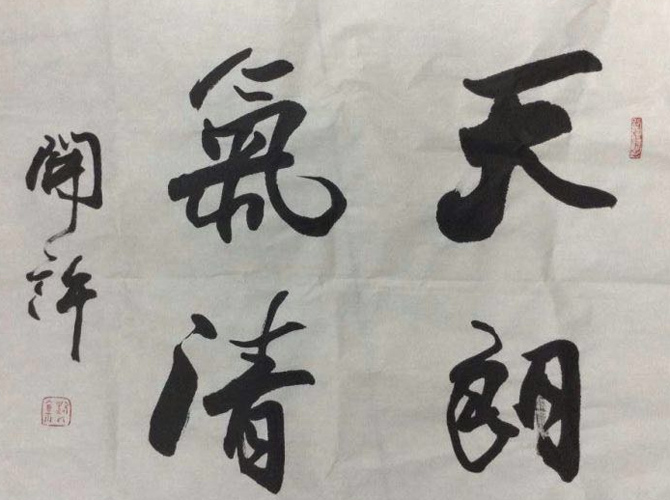 天朗
氣清
開許